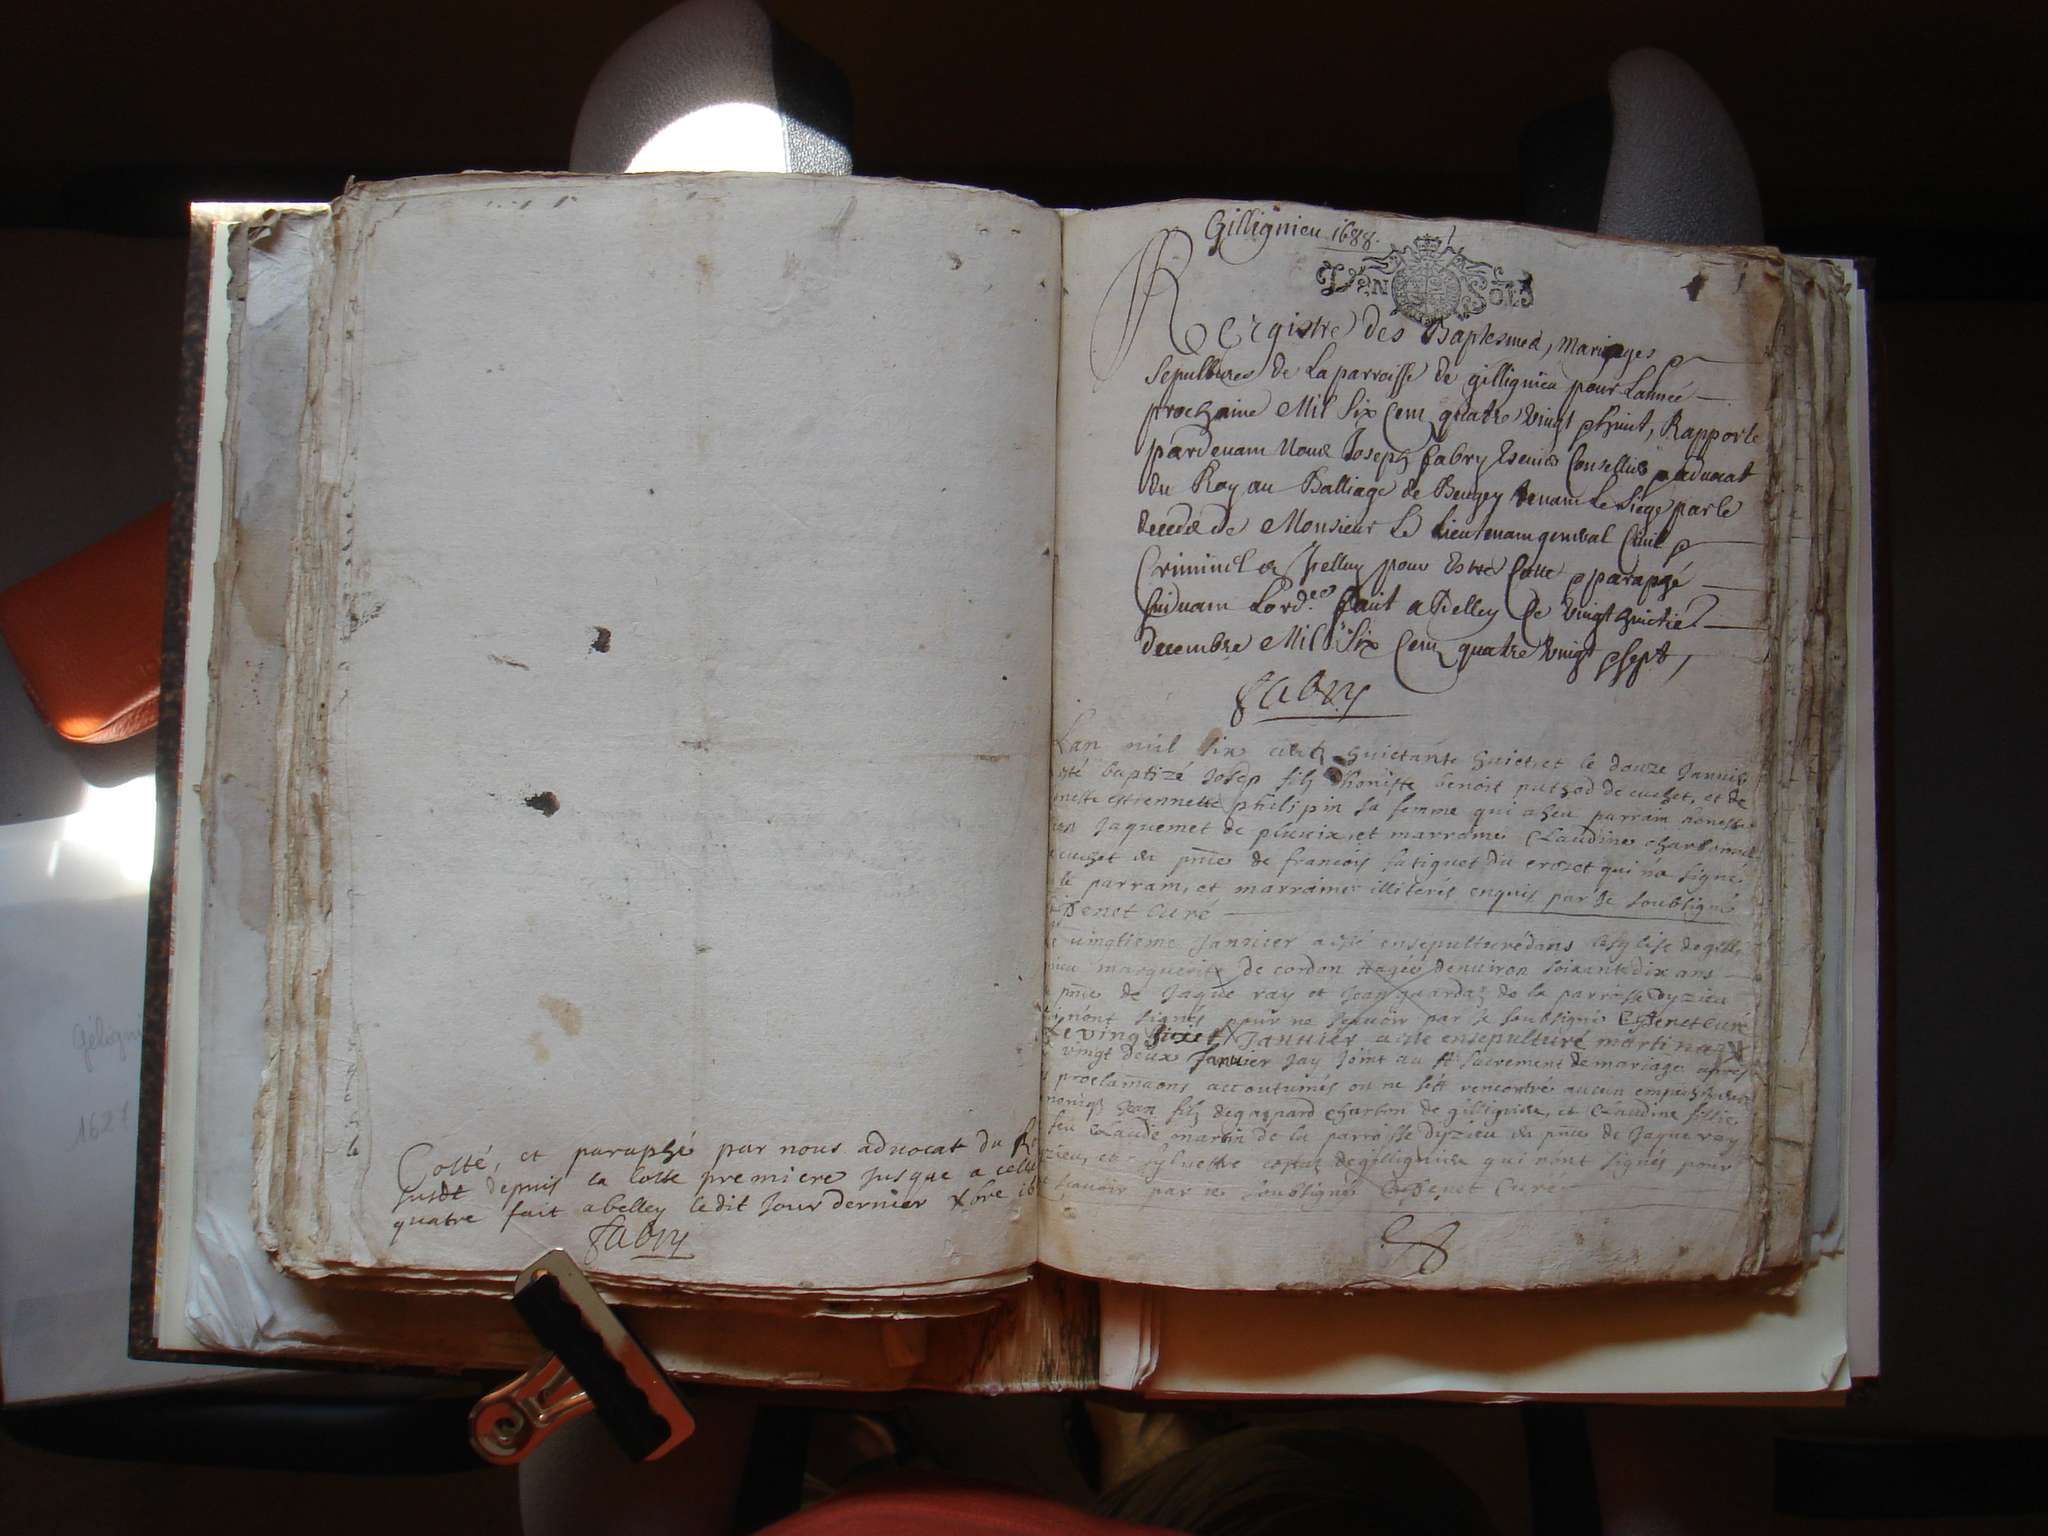 Cotté, et paraphé par nous advocat du
susdt depuis la cotte premiere jusque a celle
quatre fait a belley ledit jour dernier xbre 16
fabry
Gillignieu 1688.
DEN SOLS
Registre des Baptesmes, mariages
sepultures de La parroisse de gillignieu pour Lannée
prochaine Mil six cent quatre vingt huit, Rapporté
pardevant Nous Joseph fabry Conseiller advocat
du Roy au Balliage de Beugey tenant Le siege par le
deceds de Monsieur Le Lieutenant general Civil
Criminel pour Estre Cotté paraphé
suivant Lord.ce fait a Belley Ce vingt huictie
decembre Mil six Cent quatre vingt sept,
fabry
Lan mil six cent huictante huict, et le douze Janvier
esté baptizé Josep filz dhoneste benoit puthod de cuchet, et de
estiennette philipin sa femme qui a heu parrain honeste
Jaquemet de et marraine Claudine
cuchet en pnce de francois fatiguet du crozet qui na signé
le parrain, et marraine illiterés enquis par Je soubsigné
Benet Curé
vingtieme Janvier a esté ensepulturé dans lesglise de gilli
marguerite de cordon aagée denviron soixante dix ans
pnce de Jaque ray et Jean guardaz de la parroisse dyzieu
nont signés pour ne scavoir par Je soubsigné Benet Curé
Le ving huict Janvier a esté ensepulturé martinaz
vingt deux Janvier Jay Joint au st sacrement de mariage apres
proclamaons accoutumés ou ne sest rencontré aucun empeschement
Jean filz de gaspard charbon de gillignieu, et Claudine fillie
feu Claude martin de la parroisse dyzieu en pnce de Jaque ray
et sylvestre de gillignieu qui nont signés pour
scavoir par Je soubsigné Benet Curé